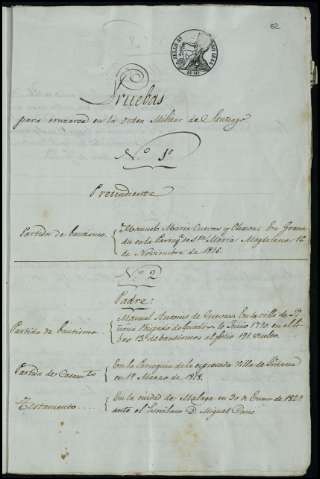 62
Pruebas
para cruzarse en la orden Militar de Santiago
Nº 1º
Pretendiente
Partida de bautismo. { Manuel Maria Cuevas y Chacon En Grana
da en la Parrqª de Stª Maria Magdalena 16
de Noviembre de 1815.
Nº 2
Padre:
Manuel Antonio de Cuevas En la villa de
Partida de bautismo { Obispado de Junio 1790 en el li
bro 13º de bautismos al folio 191 vuelto.
Partida de Casamto { En la Parroquia de la espresada Villa de
en 1º Marzo de 1818.
Testamento .... { En la ciudad de Malaga en 30 de Enero de 1829
ante el Escribano D. Miguel